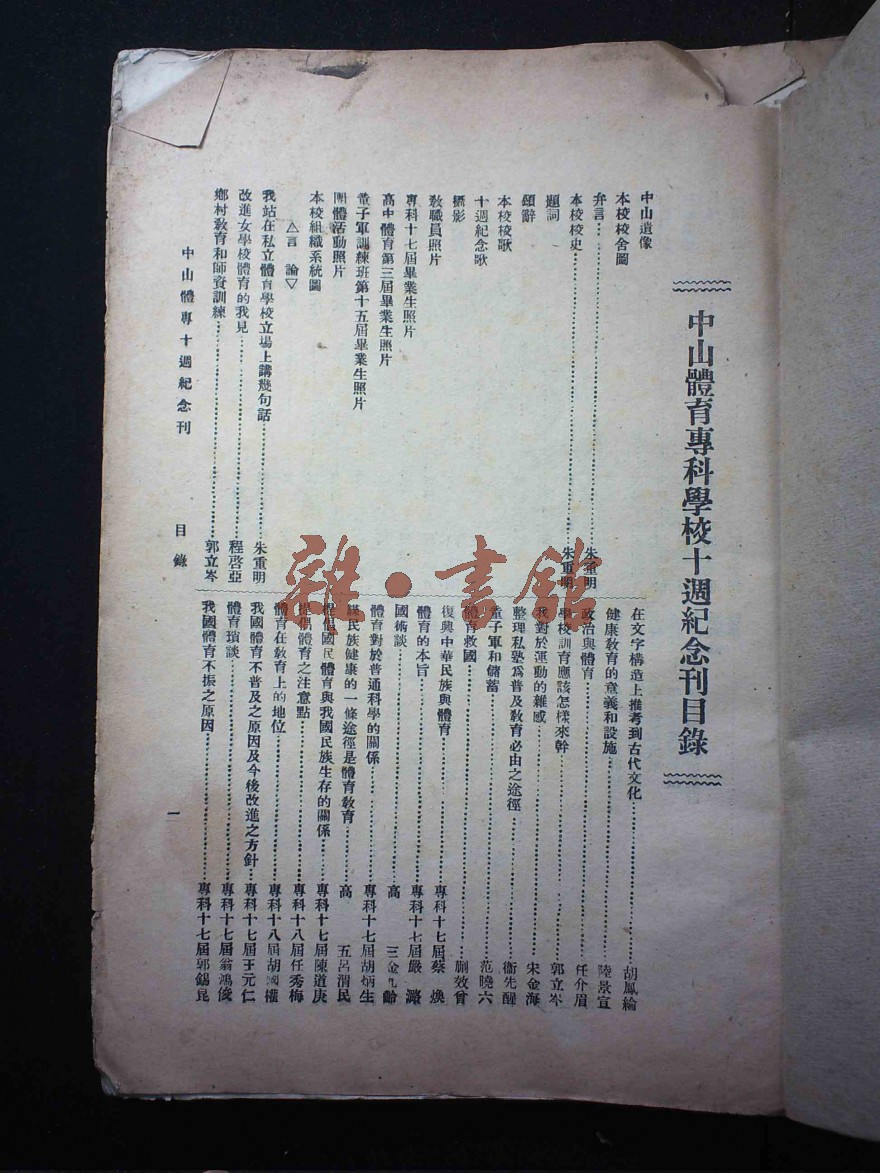 中山體育專科學校十週紀念刊目錄
中山遺像
本校校舍圖
弁言 朱重明
本校校史 朱重明
題詞
頌辭
本校校歌
十週紀念歌
攝影
教職員照片
專科十七屆畢業生照片
高中體育第三屆畢業生照片
童子軍訓練班第十五屆畢業生照片
團體活動照片
本校組織系統圖
△言論▽
我站在私立體育學校立場上講幾句話 朱重明
改進女學校體育的我見 程啓亞
鄉村教育和師資訓練 郭立岑
在文字構造上推考到古代文化 胡鳳綸
健康教育的意義和設施 陸景宣
政治與體育 任介眉
學校訓育應該怎樣來幹 郭立岑
我對於運動的雜感 宋金海
整理私塾爲普及教育必由之途徑 衞先醒
童子軍和儲蓄 范曉六
體育救國 蒯效曾
復興中華民族與體育 專科十七屆蔡煥
體育的本旨 專科十七屆嚴潞
國術談 高三金九齡
體育對於普通科學的關係 專科十七屆胡炳生
謀民族健康的一條途徑是體育教育 高五呂渭民
提倡國民體育與我國民族生存的關係 專科十七屆陳道庚
提倡體育之注意點 專科十八屆任秀梅
體育在教育上的地位 專科十八屆胡國權
我國體育不普及之原因及今後改進之方針 專科十七屆王元仁
體育瑣談 專科十七屆翁鴻俊
我國體育不振之原因 專科十七屆郭錫昆
中山體專十週紀念刊 目錄 一
雜·書館